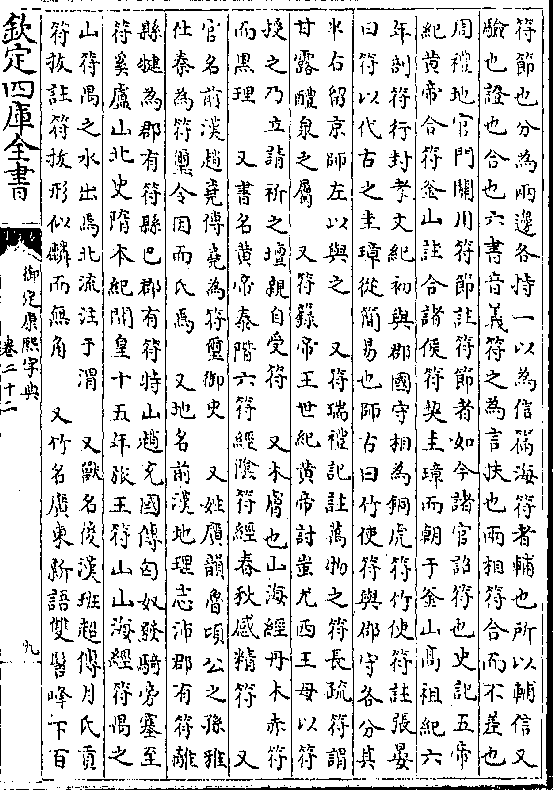 符節也分為兩邊各持一以為信篇海符者輔也所以輔信又
驗也證也合也六書音義符之為言扶也兩相符合而不差也
周禮地官門關用符節註符節者如今諸官詔符也史記五帝
紀黃帝合符釜山註合諸侯符契圭璋而朝于釜山高祖紀六
年剖符行封孝文紀初與郡國守相為銅虎符竹使符註張晏
曰符以代古之圭璋從簡易也師古曰竹使符與郡守各分其
半右留京師左以與之 又符瑞禮記註萬物之符長疏符謂
甘露醴泉之屬 又符籙帝王世紀黃帝討蚩尤西王母以符
授之乃立請祈之壇親自受符 又木膚也山海經丹木赤符
而黑理 又書名黃帝泰階六符經陰符經春秋感精符 又
官名前漢趙堯傳堯為符璽御史 又姓廣韻魯頃公之孫雅
仕秦為符璽令因而氏焉 又地名前漢地理志沛郡有符離
縣犍為郡有符縣巴郡有符特山趙充國傳匈奴發騎旁塞至
符奚廬山北史隋本紀開皇十五年張王符山山海經符禺之
山符禺之水出焉北流注于渭 又獸名後漢班超傳月氏貢
符拔註符拔形似麟而無角 又竹名廣東新語雙髻峰下百
欽定四庫全書
御定康熙字典
卷二十二
九